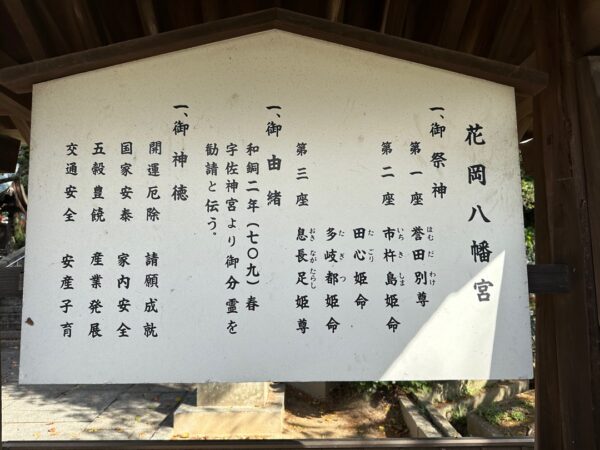 花岡八幡宮
一、御祭神
第一座 誉田別尊
はむだわけ
第二座 市杵島姫命
いちきしま
田心姫命
たごり
多岐都姫命
たぎつ
第三座 息長足姫尊
おきながたらし
一、御由緒
和銅二年(七〇九)春
宇佐神宮より御分霊を
勧請と伝う。
一、御神徳
開運厄除 請願成就
国家安泰 家内安全
五穀豊饒 産業発展
交通安全 安産子育